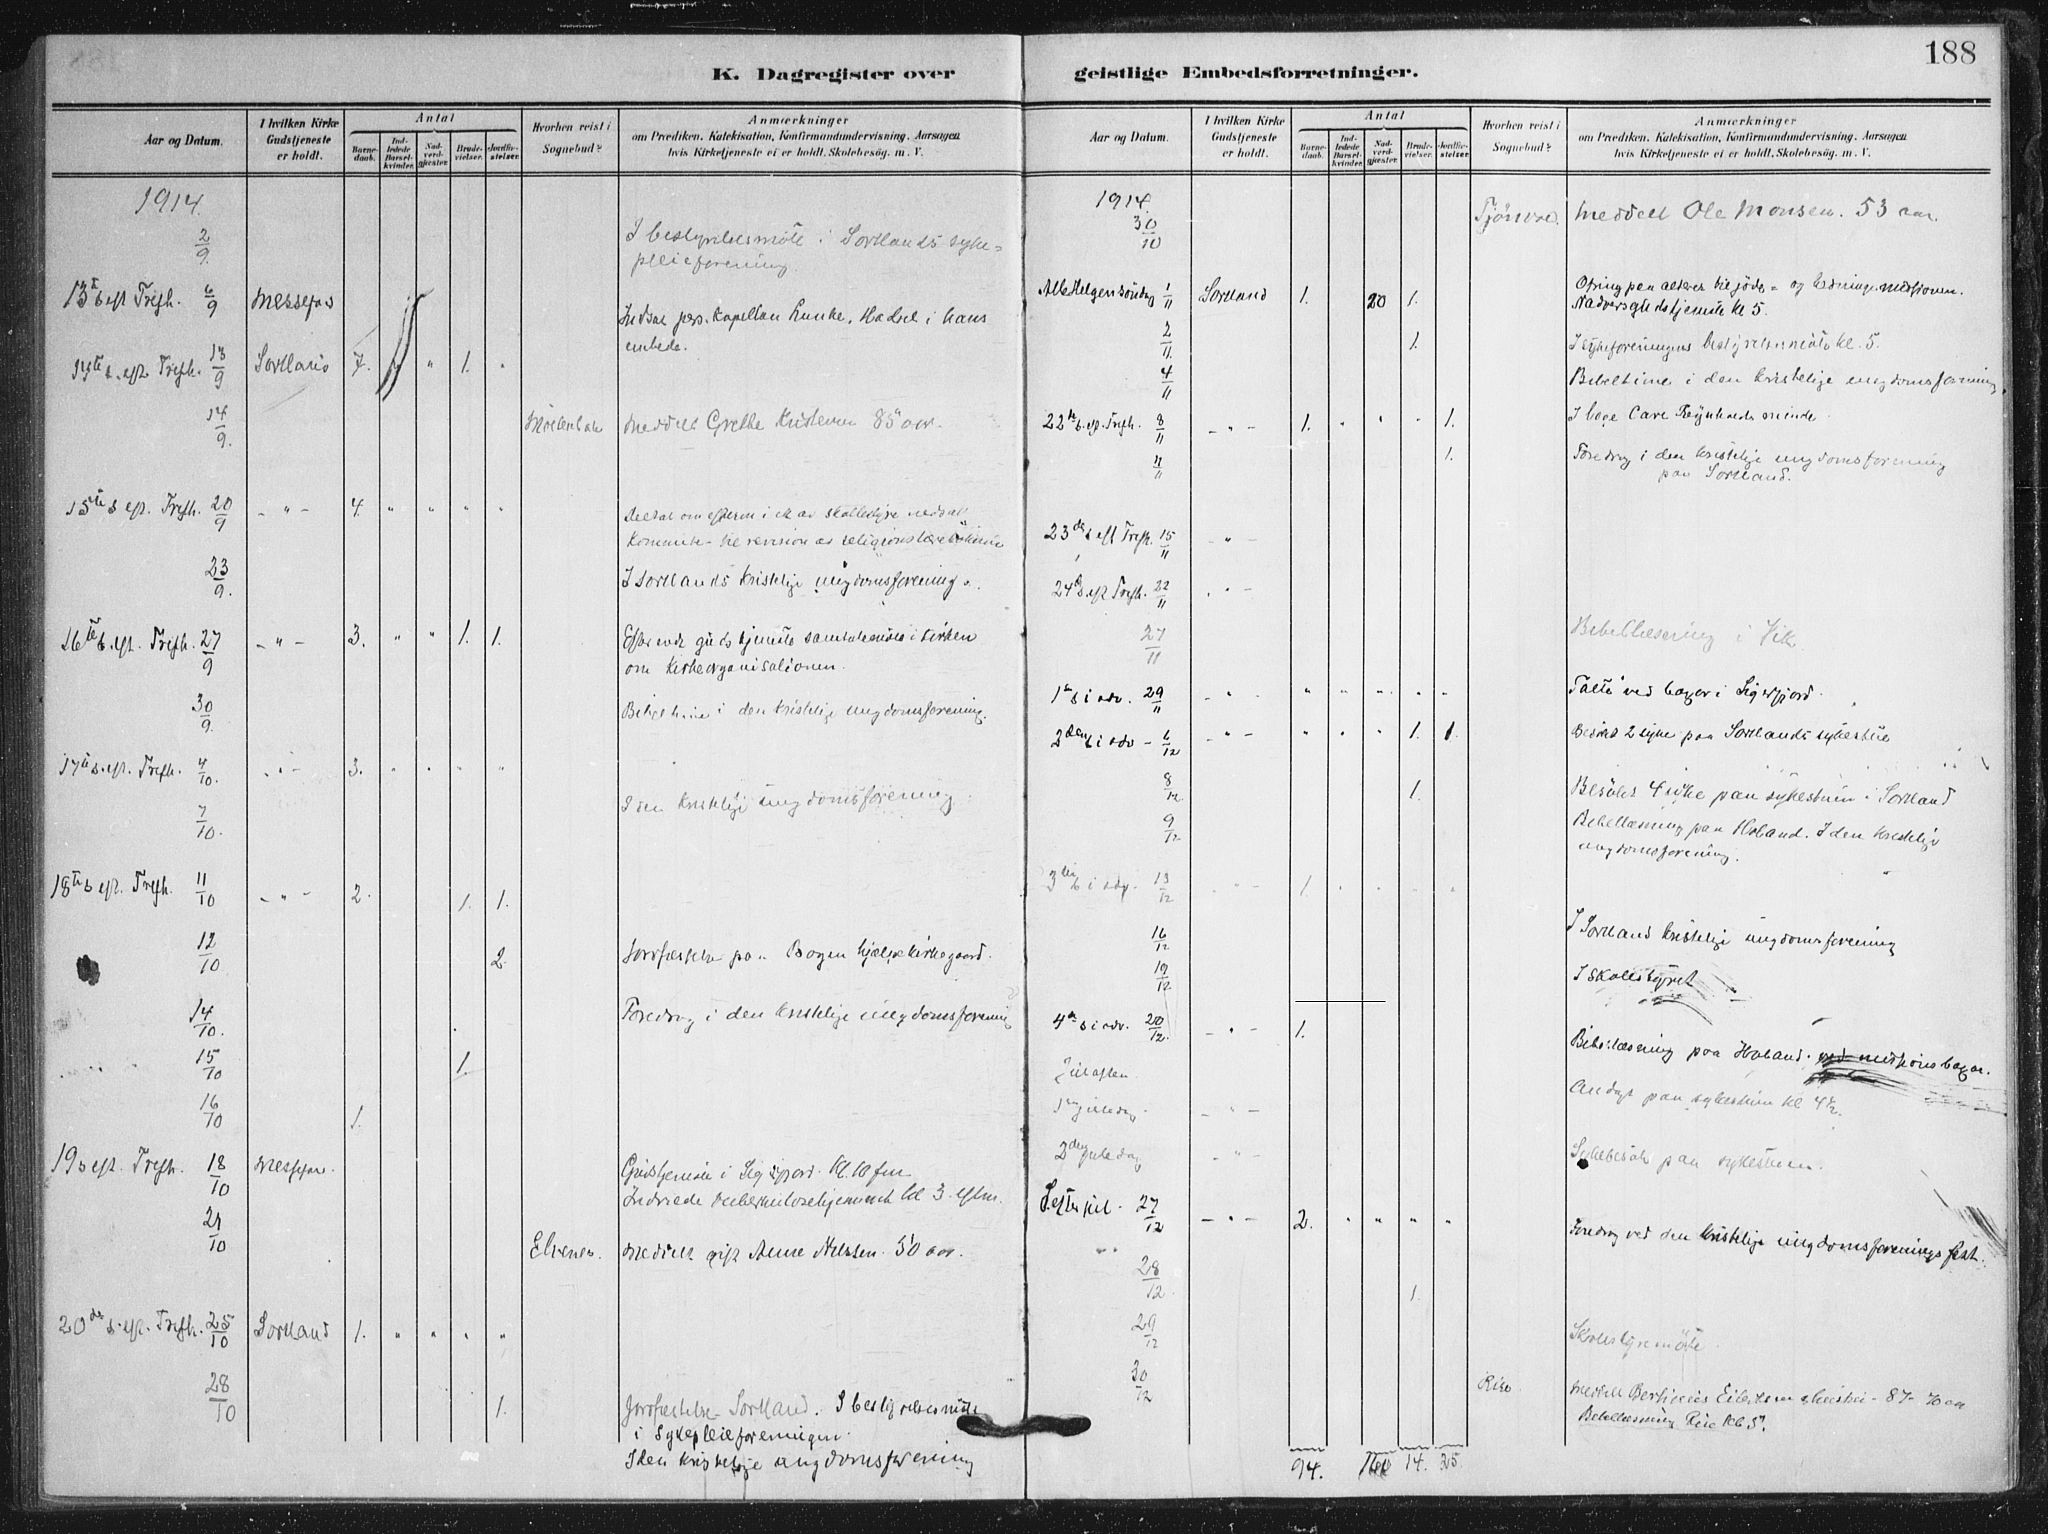 188
K. Dagregister over
Aar og Datum.
I hvilken Kirke Gudstjeneste er holdt.
Antal
Barne-daab.
Ind-ledede Barsel-kvinder.
Nad-verd-gjester.
Brude-vielser.
Jordfæ-stelser.
Hvorhen reist i Sognebud?
Anmærkninger
om Prædiken. Katekisation, Konfirmandundervisning. Aarsagen
hvis Kirketjeneste ei er holdt. Skolebesøg. m. V.
1914.
2/9. I bestyrelsesmöte i Sortlands syke=
pleieforening.
13de s. eft. Trefh. 6/9 Messefas
Indsat pers. Kapellan Lunke, Hadsel i hans
embede.
14de s. eft. Trefh. 13/9 Sortland 7. " 1. "
14/9. meddelt Grethe Kristensen 85 aar.
15de s. eft. Trefh. 20/9 - " - 4. " " " "
Deltat om efterm i et av skolestyre nedsat
Kommite til revision av religionslærebökerne
23/9. I Sortlands Kristelige ungdomsforening.
16de s. eft. Trefh. 27/9 - " - 3. " " 1. 1. Efter endt gudstjeneste samtalemöte i kirken
om kirkeorganisationen.
30/9. Bibeltime i den kristelige ungdomsforening.
17de s. eft. Trefh. 4/10. - " - 3. " " " "
7/10. I den kristelige ungdomsforening.
18de s. eft. Trefh. 11/10 - " - 2. 1. 1.
12/10 2. Jordfæstelse paa Bogen hjælpekirkegaard.
14/10. Foredrag i den kristelige ungdomsforening
15/10 1.
16/10 1.
19 s. eft. Trefh. 18/10 Messefas. Gudstjeneste i Sigerfjord. kl. 10 fm.
Indviede tuberkulosehjemmet kl 3. eftm.
21/10 Elvenes. meddelt gift Anne Nilssen. 50 aar.
20de s. eft. Trefh. 25/10 Sortland 1. " " " "
28/10 1. Jordfæstelse Sortland. I bestyrelsesmöte
i Sykepleieforeningen.
I den kristelige ungdomsforening
geistlige Embedsforretninger.
Aar og Datum.
I hvilken Kirke Gudstjeneste er holdt.
Antal
Barne-daab.
Ind-ledede Barsel-kvinder.
Nad-verd-gjester.
Brude-vielser.
Jordfæ-stelser.
Hvorhen reist i Sognebud?
Anmærkninger
om Prædiken. Katekisation, Konfirmandundervisning. Aarsagen
hvis Kirketjeneste ei er holdt. Skolebesøg. m. V.
1914.
30/10 meddelt Ole Monsen. 53 aar.
Allehelgensöndag 1/11 Sortland 1. 20 1. Ofring paa alteret til jöde- og hedningemissionen.
Nadversgudstjeneste kl 5.
2/11. 1. I sykeforeningens bestyrelsesmöte kl. 5.
4/11 Bibeltime i den kristelige ungdomsforening.
22de s. eft. Trefh. 8/11 - " - 1. " " " 1. I loge Carl minde.
11/11 1. Foredrag i den kristelige ungdomsforening
paa Sortland.
23de s. eft Trefh. 15/11 - " -
24de s. eft Trefh. 22/11 - " -
27/11 Bibellæsning i Vik
1ste s i adv. 29/11 - " - " " " " " Talte ved bazar i Sigerfjord.
2den s i adv - 6/12 - " - " " " 1. 1. Besökt 2 syke paa Sortlands sykestue
8/12. 1. Besökt 4 syke paa sykestuen i Sortland
9/12 Bibellæsning paa Holand. I den kristelige
ungdomsforening.
3die s i adv. 13/12 - " - 1. " " " "
16/12 I Sortland kristelige ungdomsforening
19/12 I skolestyret
4de s i adv. 20/12. - " - 1. Bibellæsning paa Holand. ved missionsbazar.
Juleaften. Andagt paa sykestuen kl 4½.
1ste juledag. - " -
2den juledag - " - Sykebesök paa sykestuen.
S. efter jul. 27/12 - " - 2. " " " " Foredrag ved den kristelige ungdomsforenings fest.
28/12. 1.
29/12 Skolestyremöte.
30/12 Rise. meddelt
Bibellæsning Rise kl. 5.
94. 14. 25.